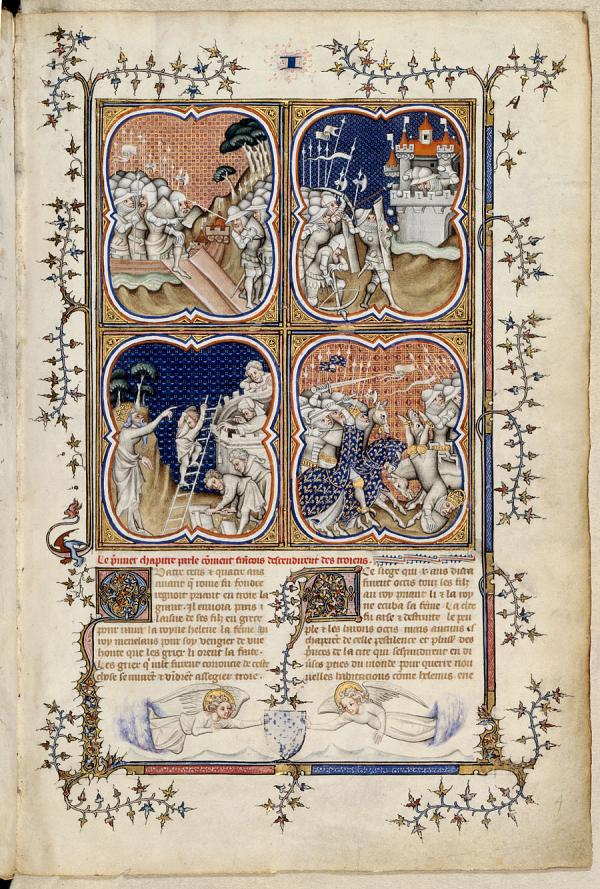 I
Le p̃mier chapitre parle cõment francois descendirent des troiens
Quatre cens & quatre ans
auant que rome fu fondee
regnoit priant en troie la
grant. Il enuoia paris
lainsne de ses filz en grece
pour rauir la royne helene la fẽme au
roy menelaus pour soy vengier de vne
honte que les griex li orent faite.
Les griex qui moult furent courrouciẽ de ceste
chose se murent & vindrent assegier troie.
Ce siege qui .x. ans dura
furent occis touz les filz
au roy priant li & la roy
ne ecuba sa fẽme. La cite
fu arse & destruite le peu
ple & les barons occis. Mais aucuns es
chaperent de celle pestilence et plusieurs des
princes de la cite qui sespandirent en di
uerses pties du monde pour querre nou
uelles habitacions cõme helenus. ene